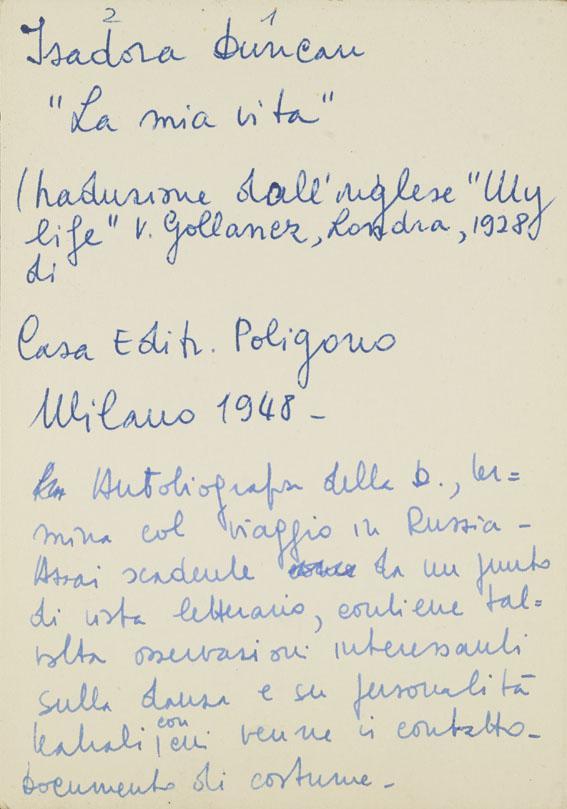 2 1
Isadora Duncan
"La mia vita"
(traduzione dall'inglese "My
life" V. Gollancz, Londra, 1928)
di
Casa Editr. Poligono
Milano 1948 -
Autobiografia della D., ter=
mina col viaggio in Russia -
Assai scadente da un punto
di vista letterario, contiene tal=
volta osservazioni interessanti
sulla danza e su personalità
teatrali con cui venne in contatto -
Documento di costume -